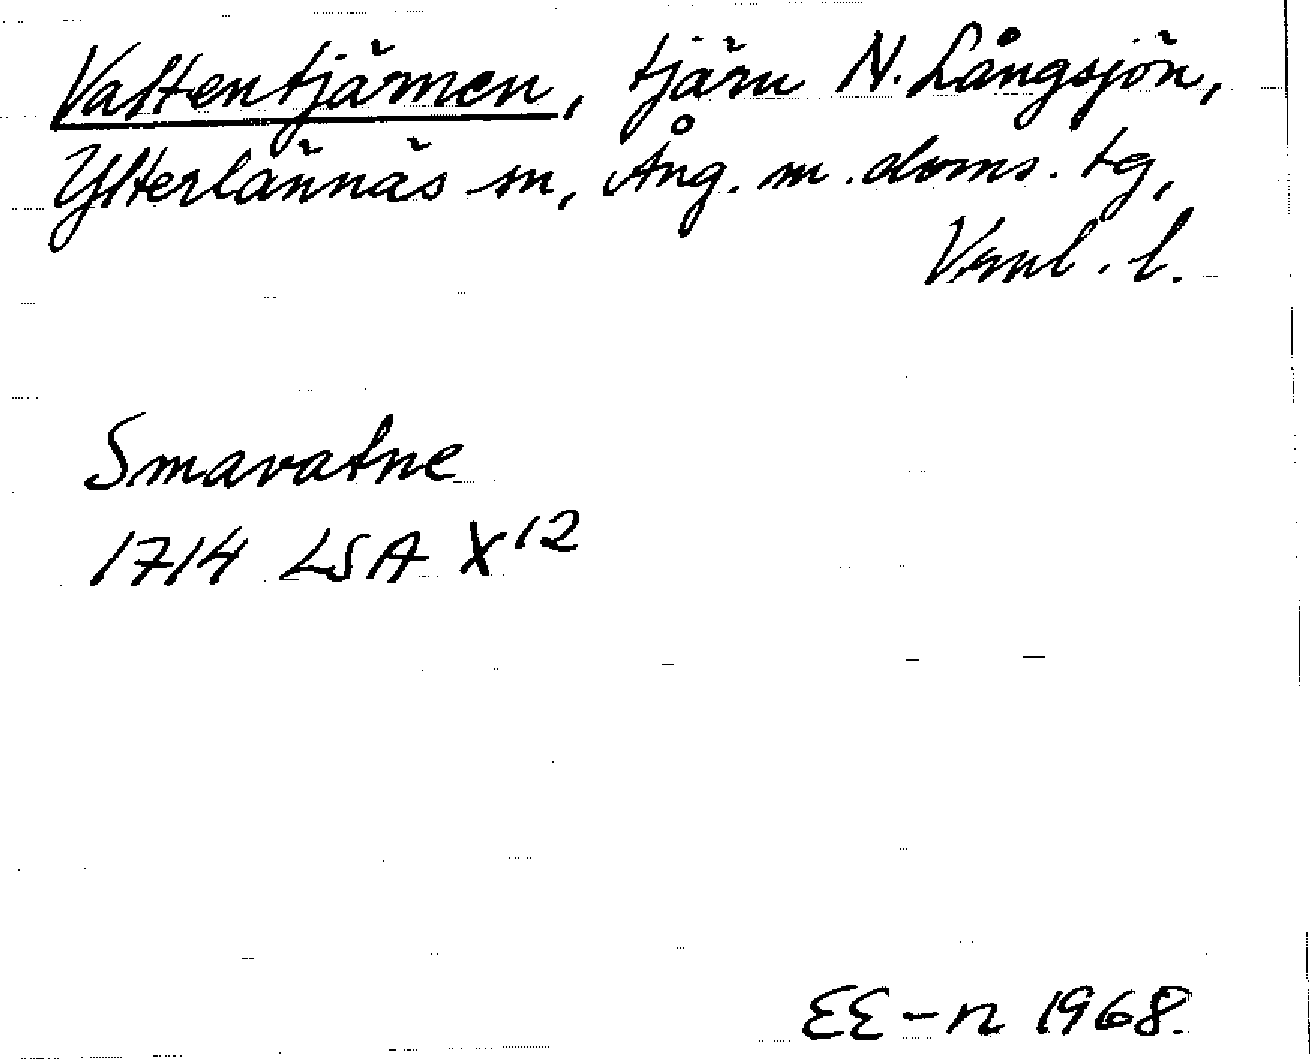 Vattentjärnen, tjärn N. Långsjön,
Ytterlännäs sn, Ång. m. doms. tg,
Vnl. l.
Smavatne
1714 LSA X¹²
EE-n 1968.